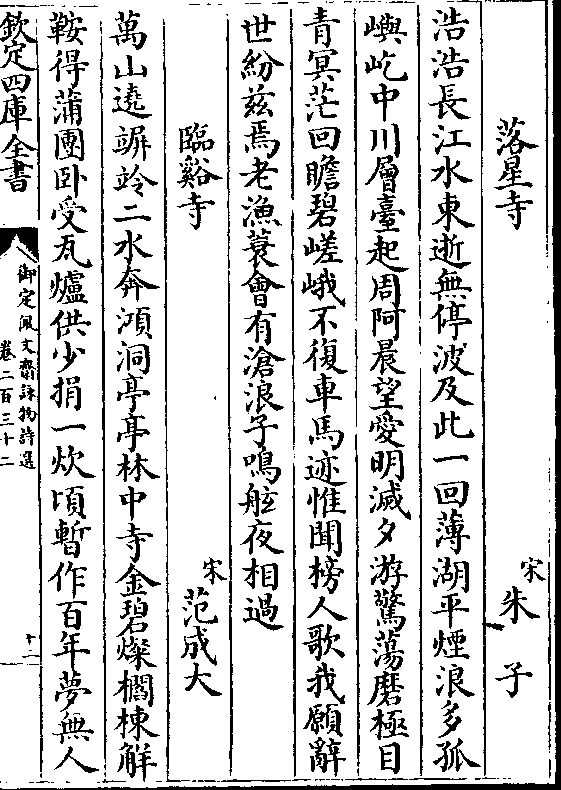 落星寺
宋朱子
浩浩長江水東逝無停波及此一回薄湖平煙浪多孤
嶼屹中川層臺起周阿晨望愛明滅夕游驚蕩磨極目
青冥茫回瞻碧嵯峨不復車馬迹惟聞榜人歌我願辭
世紛兹焉老漁蓑會有滄浪子鳴舷夜相過
臨谿寺
宋范成大
萬山遶竮竛二水奔澒洞亭亭林中寺金碧燦櫩棟解
鞍得蒲團卧受瓦爐供少捐一炊頃暫作百年夢無人
欽定四庫全書
御定佩文齋詠物詩選
卷二百三十二
十二